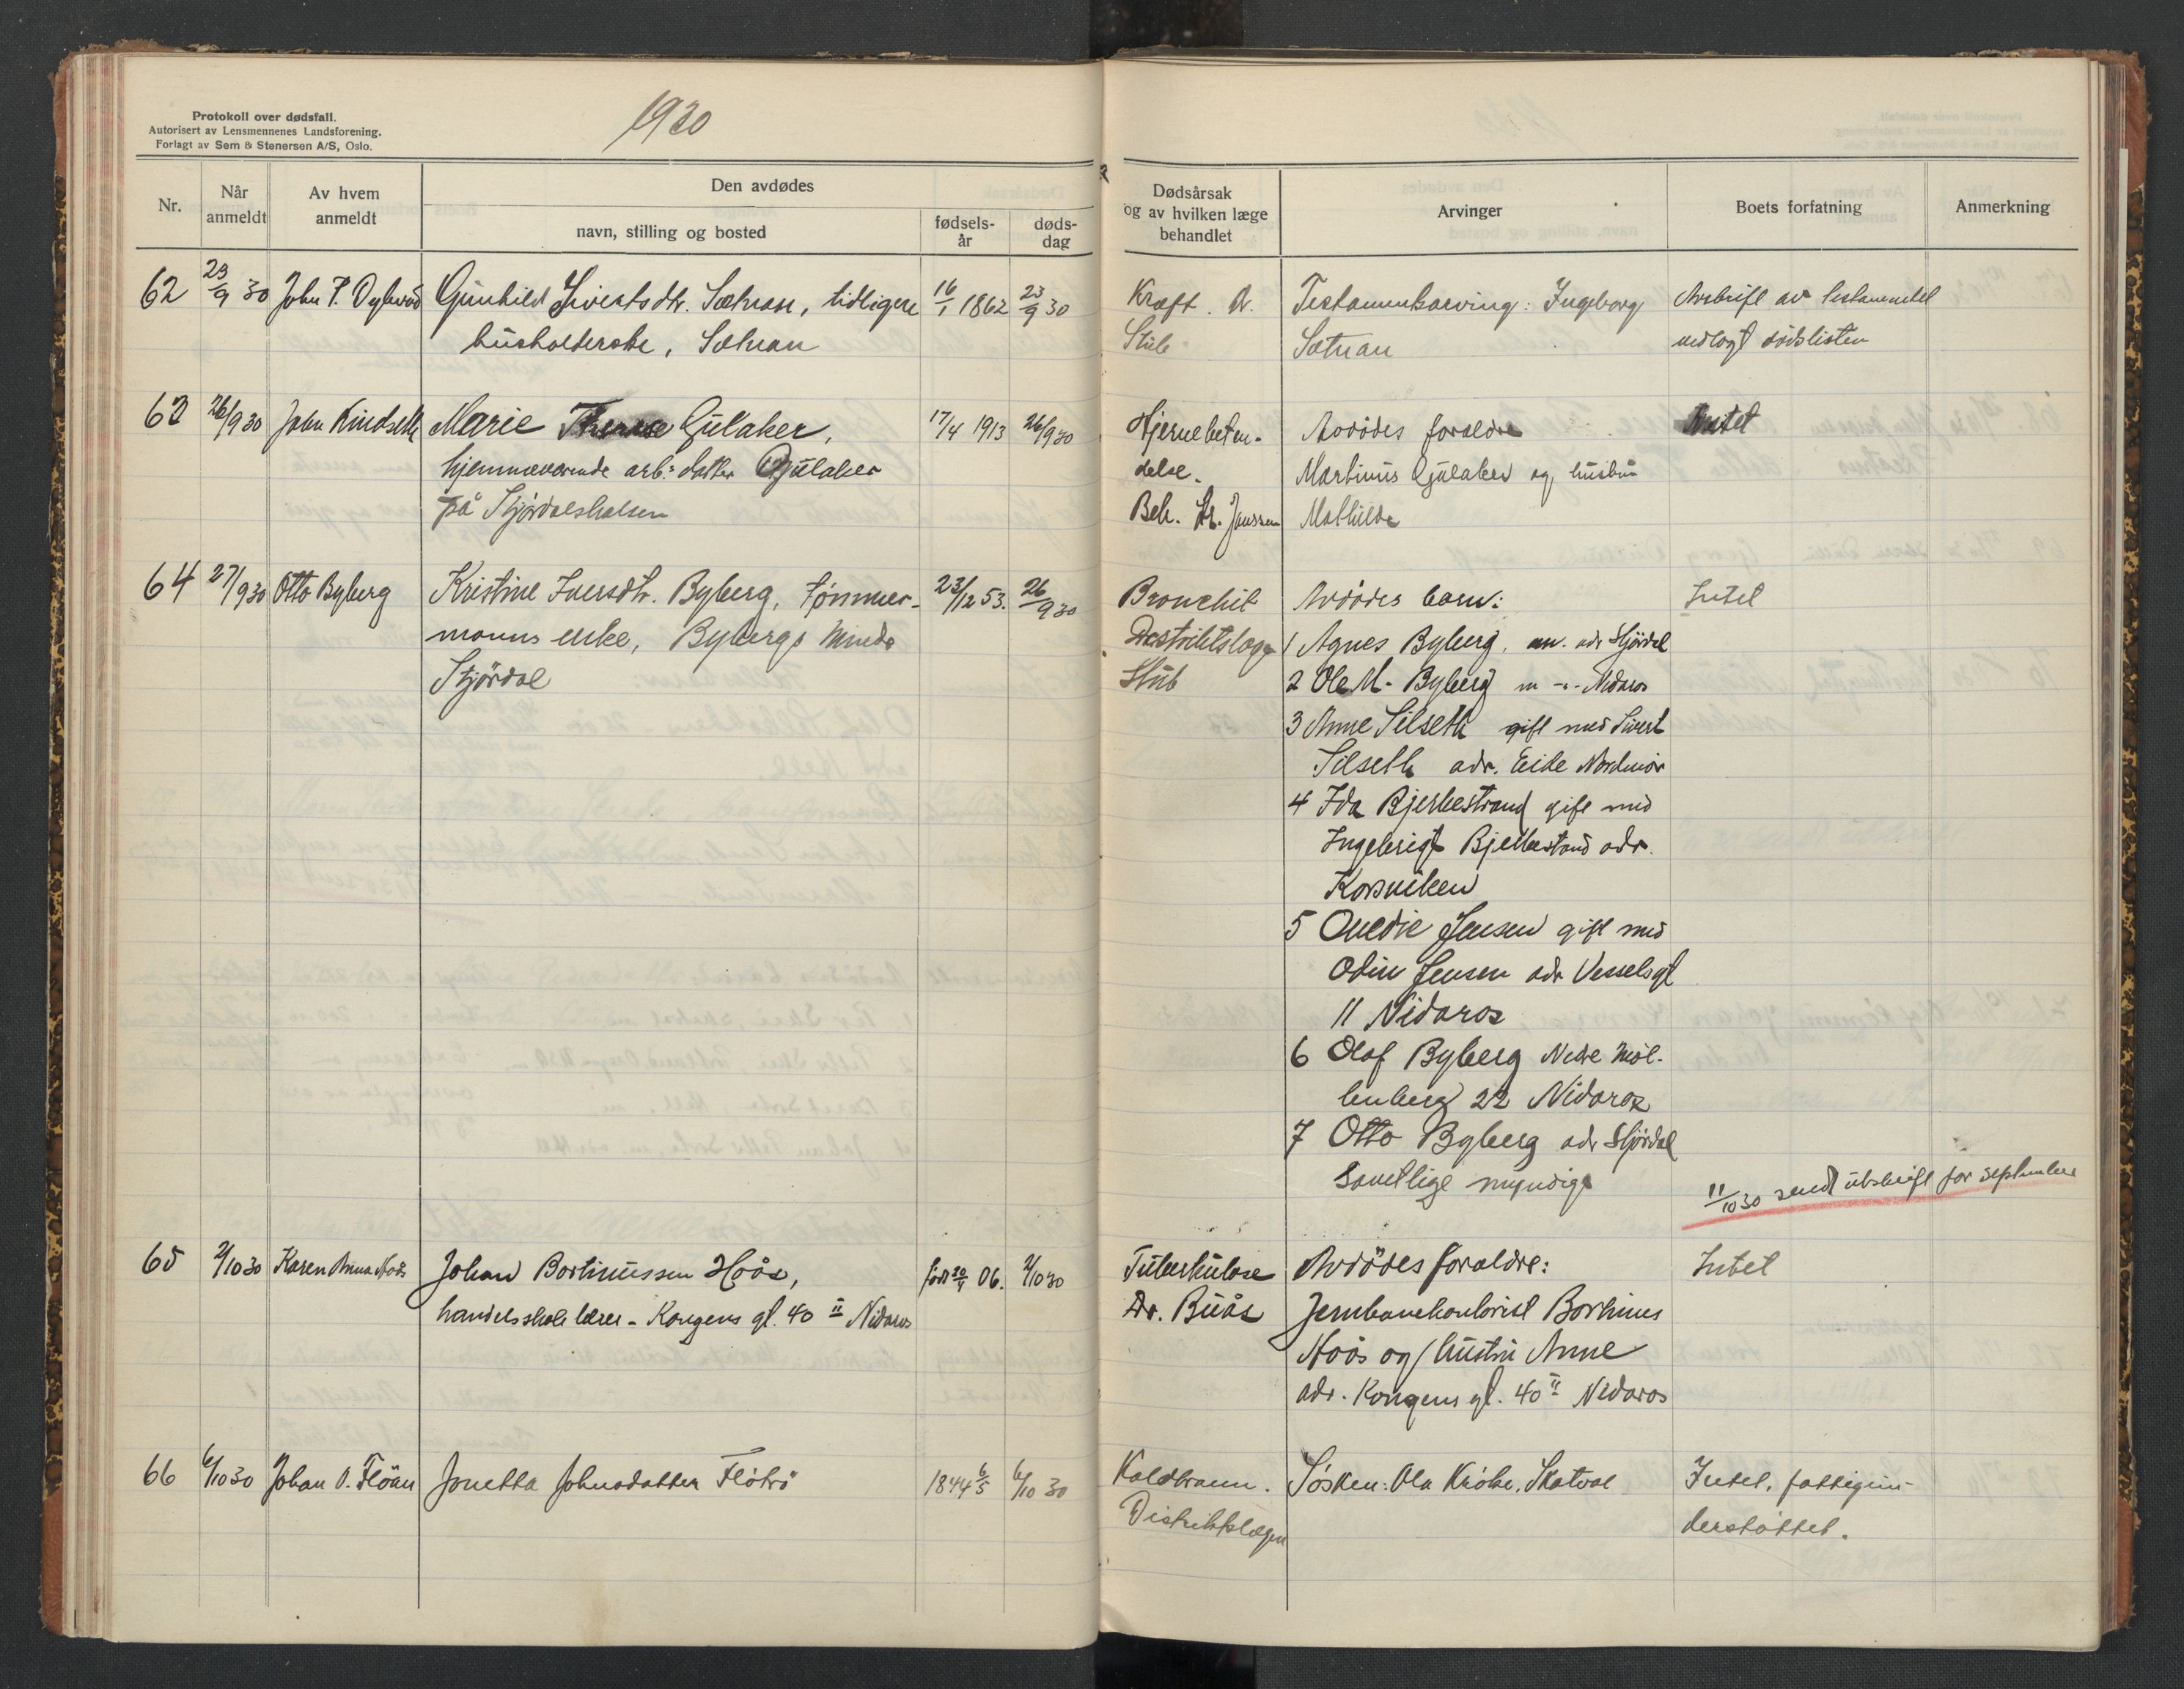 Protokoll over dødsfall.
Autorisert av Lensmennenes Landsforening.
Forlagt av Sem & Stenersen A/S, Oslo.
1930
Nr.
Når anmeldt
Av hvem anmeldt
Den avdødes
navn, stilling og bosted
fødselsår
dødsdag
Dødsårsak og av hvilken læge behandlet
Arvinger
Boets forfatning
Anmerkning
62 23/9 30 John P. Gunhild Sivertsdtr. Sætnan, tidligere 16/1 1862 23/9 30
husholderske, Sætnan
Kræft. Dr.
Stub
Testamentsarving: Ingeborg
Sætnan
Avskrift av testamentet
vedlagt dødslisten
63 26/9 30 John Kindseth Marie Gulaker, 17/4 1913 26/9 30
hjemmeværende arb. datter Gjulaker
på Stjørdalshalsen
Hjernebeten-
delse.
Beh. Dr. Janssen
Avdødes foreldre
Martinus Gjulaker og hustru
Mathilde
Intet
64 27/9 30 Otto Byberg Kristine Iversdtr. Byberg, tømmer- 23/12 53. 26/9 30
manns enke, Bybergs Minde
Stjørdal
Bronchit
Distriktslæge
Stub
Avdødes barn:
1 Agnes Byberg, m. adr Stjørdal
2 Ole M. Byberg m -"- Nidaros
3 Anne Silseth gift med Sivert
Silseth adr. Eide Nordmør
4 Ida Bjerkestrand gift med
Ingebrigt Bjerkestrand adr.
Korsviken
5 Ovedie Jensen gift med
Odin Jensen adr Vesselsgt
11 Nidaros
6 Olaf Byberg Nedre Møl-
lenberg 22 Nidaros
7 Otto Byberg adr Stjørdal
Samtlige myndige
Intet
11/10 30 sendt utskrift for september
65 2/10 30 Karen Anna Hoås Johan Bortinussen Hoås, født 20/4 06. 2/10 30
handelsskolelærer - Kongens gt. 40 II Nidaros
Tuberkulose
Dr. Buås
Avdødes foreldre:
Jernbanekontorist Bortinus
Hoås og hustru Anne
adr. Kongens gt. 40 II Nidaros
Intet
66 6/10 30 Johan O. Fløan Jonetta Johnsdatter Fløtrø 1844 6/5 6/10 30
Koldbrann.
Distriktslægen
Søsken: Ola Kråke, Skatval
Intet, fattigun-
derstøttet.